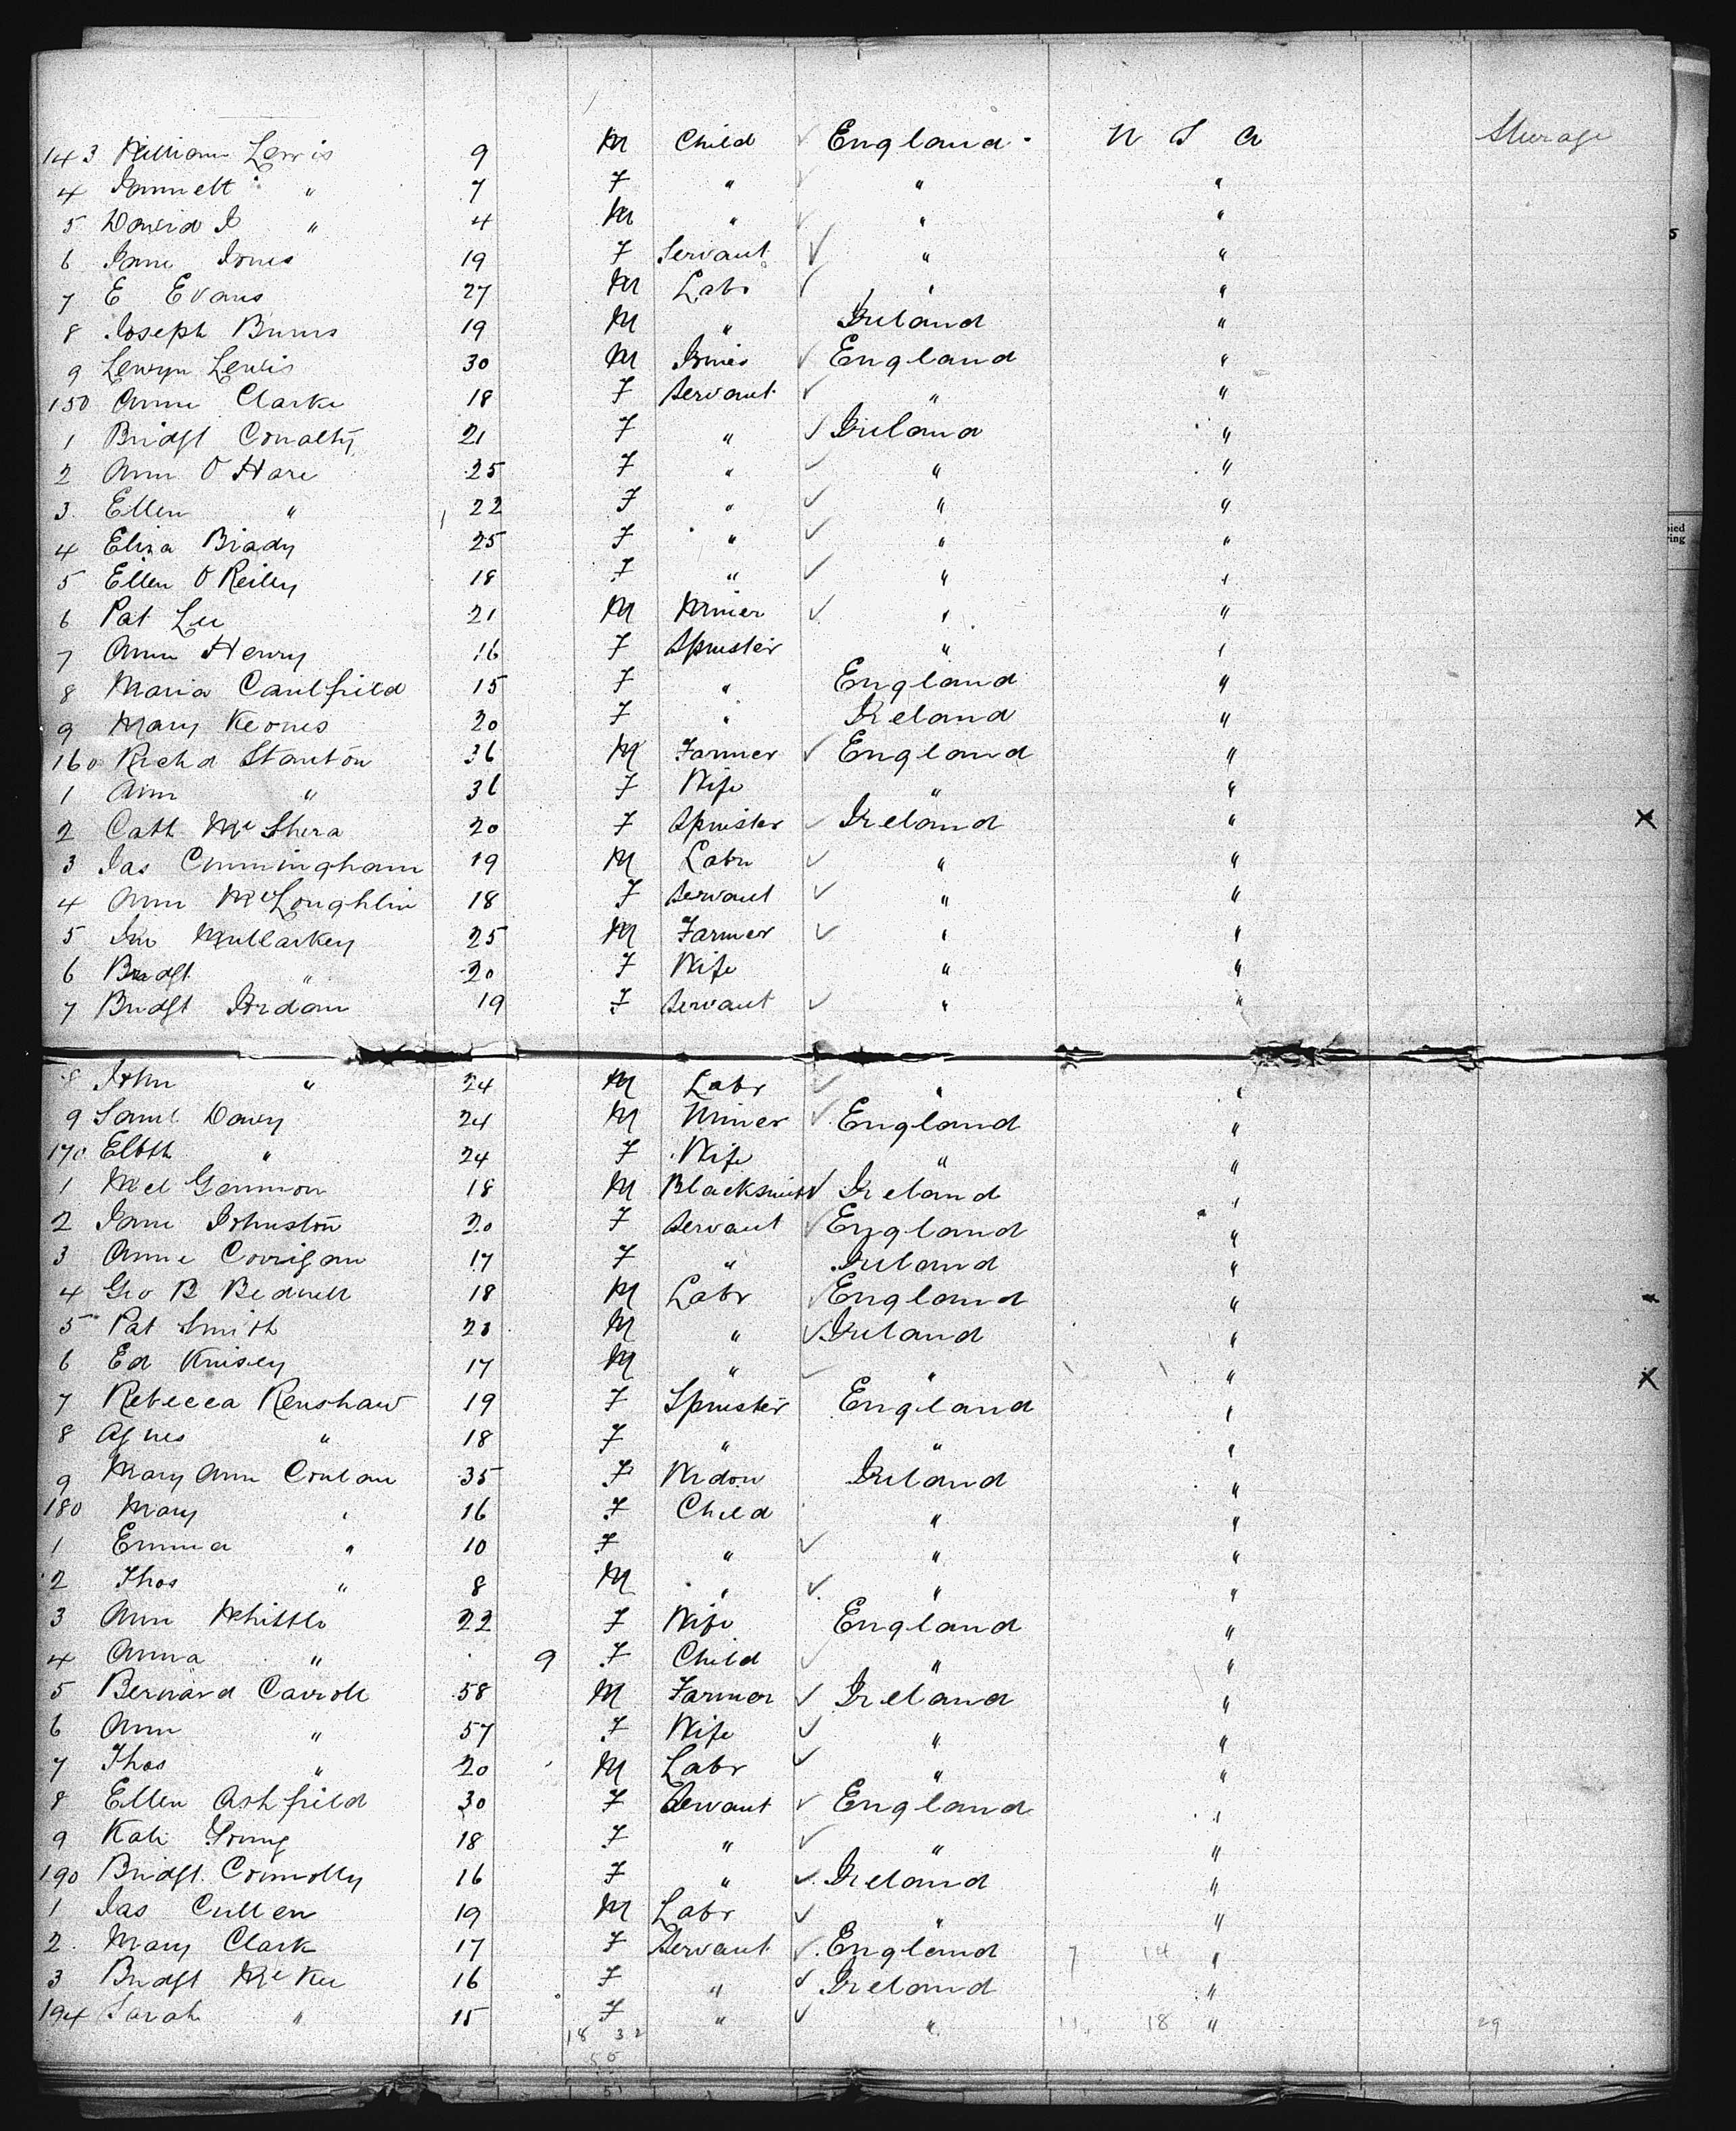 143 William Lewis 9 M Child England U S A Steerage
4 Jannett " 7 F " " "
5 David J " 4 M " " "
6 Jane Jones 19 F Servant " "
7 E Evans 27 M Labr " "
8 Joseph Burns 19 M " Ireland "
9 Lewyn Lewis 30 M England "
150 Annie Clarke 18 F Servant " "
1 Bridgt Conalty 21 F " Ireland "
2 Ann O Hare 25 F " " "
3 Ellen " 22 F " " "
4 Eliza Brady 25 F " " "
5 Ellen O Reiley 18 F " " "
6 Pat Lee 21 M Miner " "
7 Annie Henry 16 F Spinster " "
8 Maria Caulfield 15 F " England "
9 Mary Keones 20 F " Ireland "
160 Richd Stanton 36 M Farmer England "
1 Ann " 36 F Wife " "
2 Cath Mc Shera 20 F Spinster Ireland " X
3 Jas Cunningham 19 M Labr " "
4 Ann McLoughlin 18 F Servant " "
5 Jno Mullarkey 25 M Farmer " "
6 Bridgt " 20 F Wife " "
7 Bridgt Jordan 19 F Servant " "
8 John " 24 M Labr " "
9 Saml Davy 24 M Miner England "
170 Elbth " 24 F Wife " "
1 Mcl Gannon 18 M Blacksmith Ireland "
2 Jane Johnston 20 F Servant England "
3 Annie Corrigan 17 F " Ireland "
4 Geo B Bednell 18 M Labr England "
5 Pat Smith 21 M " Ireland "
6 Ed Knisey 17 M " " " X
7 Rebecca Renshaw 19 F Spinster England "
8 Agnes " 18 F " " "
9 Mary Ann Conlan 35 F Widow Ireland "
180 Mary " 16 F Child " "
1 Emma " 10 F " " "
2 Thos " 8 M " " "
3 Ann Whittle 22 F Wife England "
4 Anna " 9 F Child " "
5 Bernard Carroll 58 M Farmer Ireland "
6 Ann " 57 F Wife " "
7 Thos " 20 M Labr " "
8 Ellen Ashfield 30 F Servant England "
9 Kate Young 18 F " " "
190 Bridgt Connolly 16 F " Ireland "
1 Jas Cullen 19 M Labr " "
2 Mary Clark 17 F Servant England 7 14 "
3 Bridgt Mc Kee 16 F " Ireland "
194 Sarah " 15 F " " 11 18 " 29
18 32
50
51